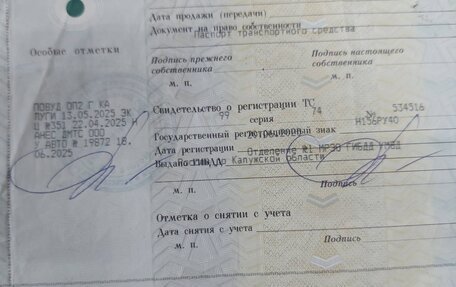 Дата продажи (передачи)
Документ на право собственности
Паспорт транспортного средства
Особые отметки
Подпись прежнего собственника
Подпись настоящего собственника
м. п.
м. п.
ПОВУД ОП2 Г КА
ЛУГИ 13.05.2025 ЗК
Ц №351 22.04.2025 Н
АНБС ДМТС ООО
У АВТО № 19872 18.
06.2025
Свидетельство о регистрации ТС
99 74 № 534516
серия
Государственный регистрационный знак
Н156РУ40
Дата регистрации
Отделение №1 МРЭО ГИБДД УМВД
Выдано ГИБДД
Калужской области
м. п.
Подпись
Отметка о снятии с учета
Дата снятия с учета
м. п.
Подпись